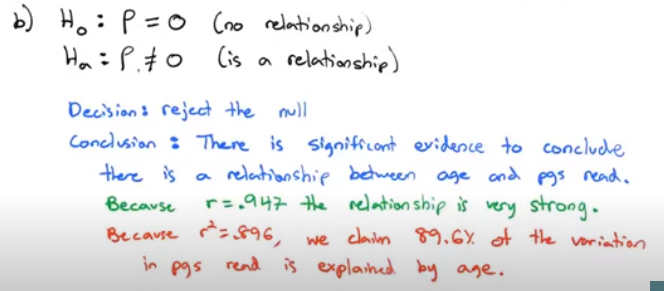 b) H₀ : ρ = 0 (no relationship)
Hₐ : ρ ≠ 0 (is a relationship)
Decision : reject the null
Conclusion : There is significant evidence to conclude
there is a relationship between age and pgs read.
Because r = .947 the relationship is very strong.
Because r² = .896, we claim 89.6% of the variation
in pgs read is explained by age.